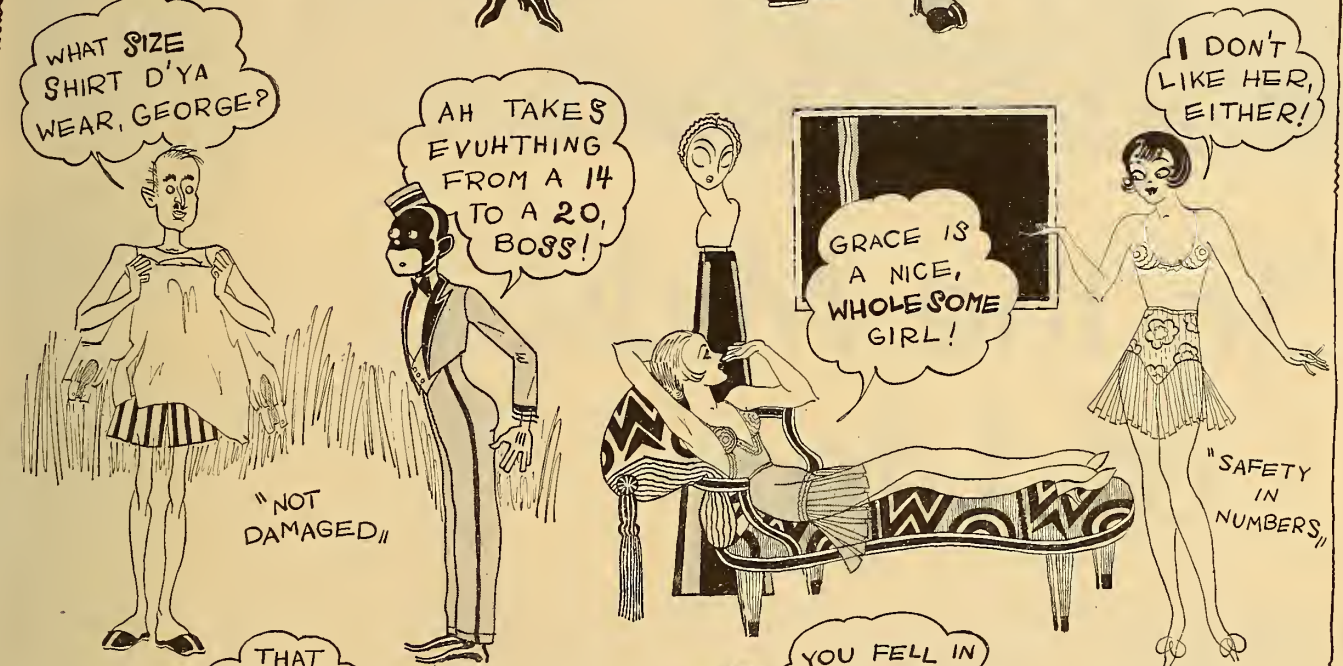 WHAT SIZE
SHIRT D'YA
WEAR, GEORGE?
AH TAKES
EVUHTHING
FROM A 14
TO A 20,
BOSS!
"NOT
DAMAGED"
GRACE IS
A NICE,
WHOLESOME
GIRL!
I DON'T
LIKE HER,
EITHER!
"SAFETY
IN
NUMBERS"
THAT
YOU FELL IN